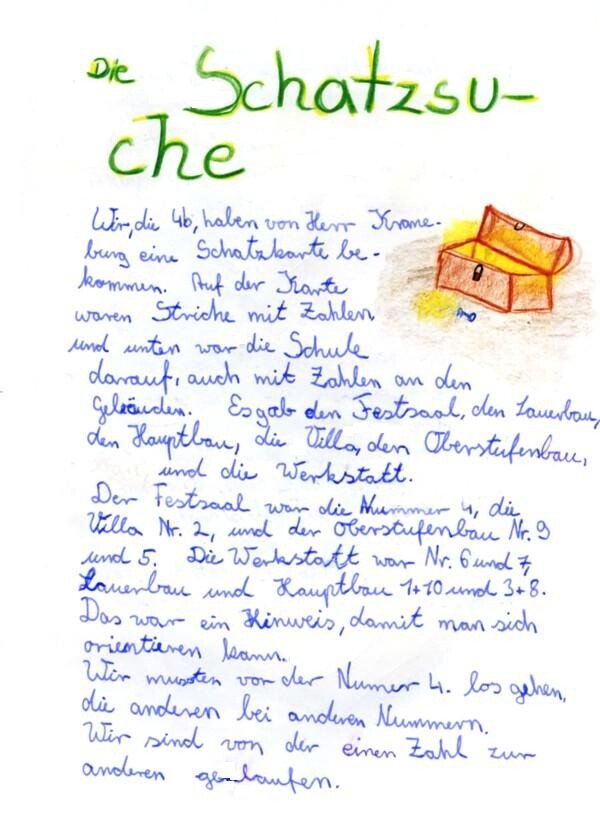 Die Schatzsu-
che
Wir, die 4b, haben von Herr Krane-
burg eine Schatzkarte be-
kommen. Auf der Karte
waren Striche mit Zahlen
und unten war die Schule
darauf, auch mit Zahlen an den
Geleäuden. Es gab den Festsaal, den Lauerbau,
den Hauptbau, die Villa, den Oberstufenbau,
und die Werkstatt.
Der Festsaal war die Nummer 4, die
Villa Nr. 2, und der Oberstufenbau Nr. 9
und 5. Die Werkstatt war Nr. 6 und 7,
Lauerbau und Hauptbau 1+10 und 3+8.
Das war ein Hinweis, damit man sich
orientieren kann.
Wir mussten vor der Numer 4. los gehen,
die anderen bei anderen Nummern.
Wir sind von der einen Zahl zur
anderen gelaufen.